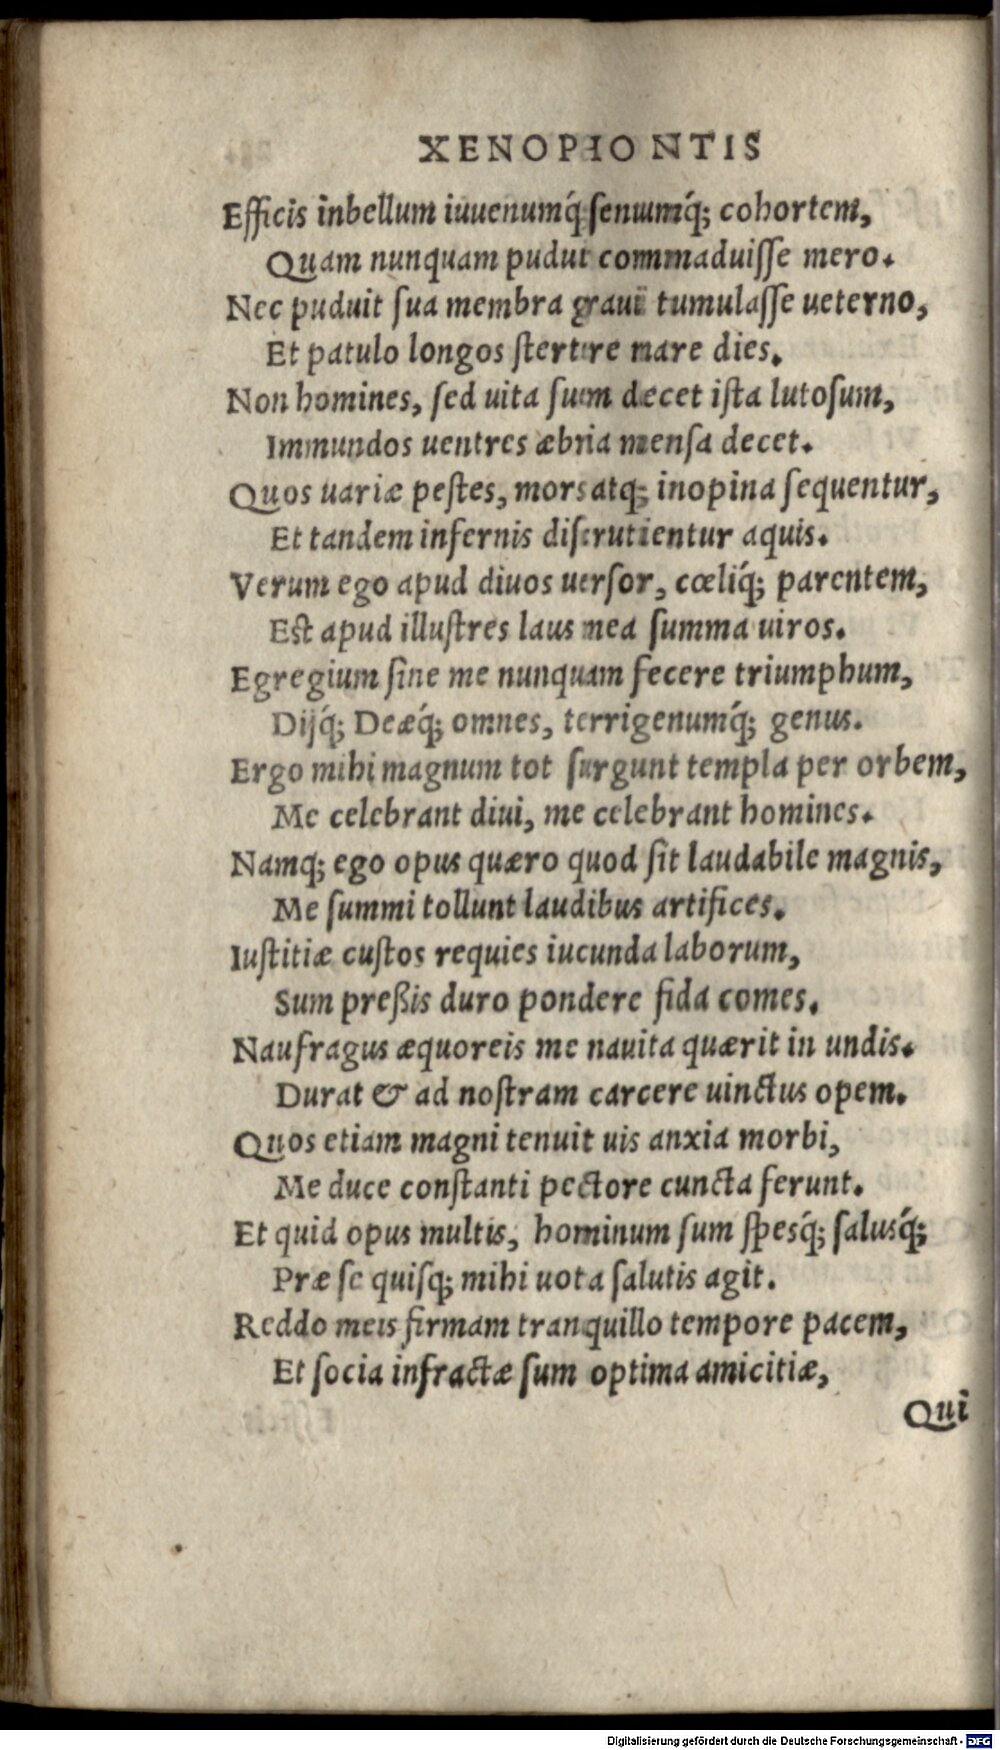 XENOPHONTIS
Efficis inbellum iuuenumq́; senumq́; cohortem,
Quam nunquam puduit commaduisse mero.
Nec puduit sua membra graui tumulasse ueterno,
Et patulo longos stertere nare dies.
Non homines, sed uita suem decet ista lutosum,
Immundos uentres æbria mensa decet.
Quos uariæ pestes, mors atq; inopina sequentur,
Et tandem infernis discrutientur aquis.
Verum ego apud diuos uersor, cœliq́; parentem,
Est apud illustres laus mea summa uiros.
Egregium sine me nunquam fecere triumphum,
Dijq́; Deæq́; omnes, terrigenumq́; genus.
Ergo mihi magnum tot surgunt templa per orbem,
Me celebrant diui, me celebrant homines.
Namq; ego opus quæro quod sit laudabile magnis,
Me summi tollunt laudibus artifices.
Iustitiæ custos requies iucunda laborum,
Sum preßis duro pondere fida comes.
Naufragus æquoreis me nauita quærit in undis.
Durat & ad nostram carcere uinctus opem.
Quos etiam magni tenuit uis anxia morbi,
Me duce constanti pectore cuncta ferunt.
Et quid opus multis, hominum sum spesq́; salusq́;
Præ se quisq; mihi uota salutis agit.
Reddo meis firmam tranquillo tempore pacem,
Et socia infractæ sum optima amicitiæ,
Qui
Digitalisierung gefördert durch die Deutsche Forschungsgemeinschaft - DFG